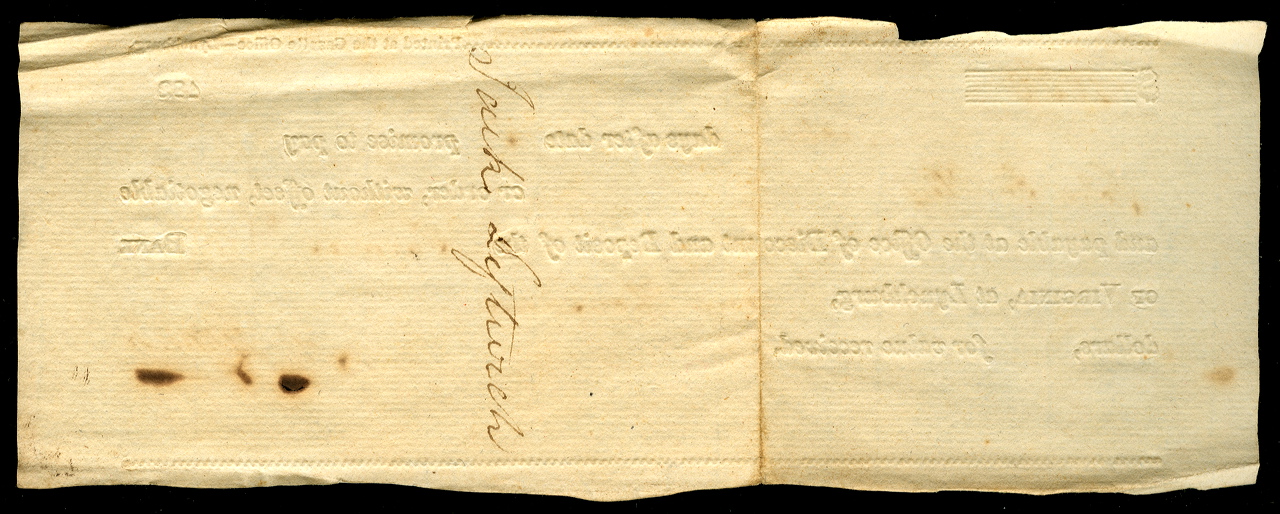 Printed at the Gazette Office—Lynchburg
$ 182
days after date promise to pay
or order, without offset, negotiable
and payable at the Office of Discount and Deposit of the BANK
OF VIRGINIA, at Lynchburg,
dollars, for value received.
Jack Leftwich